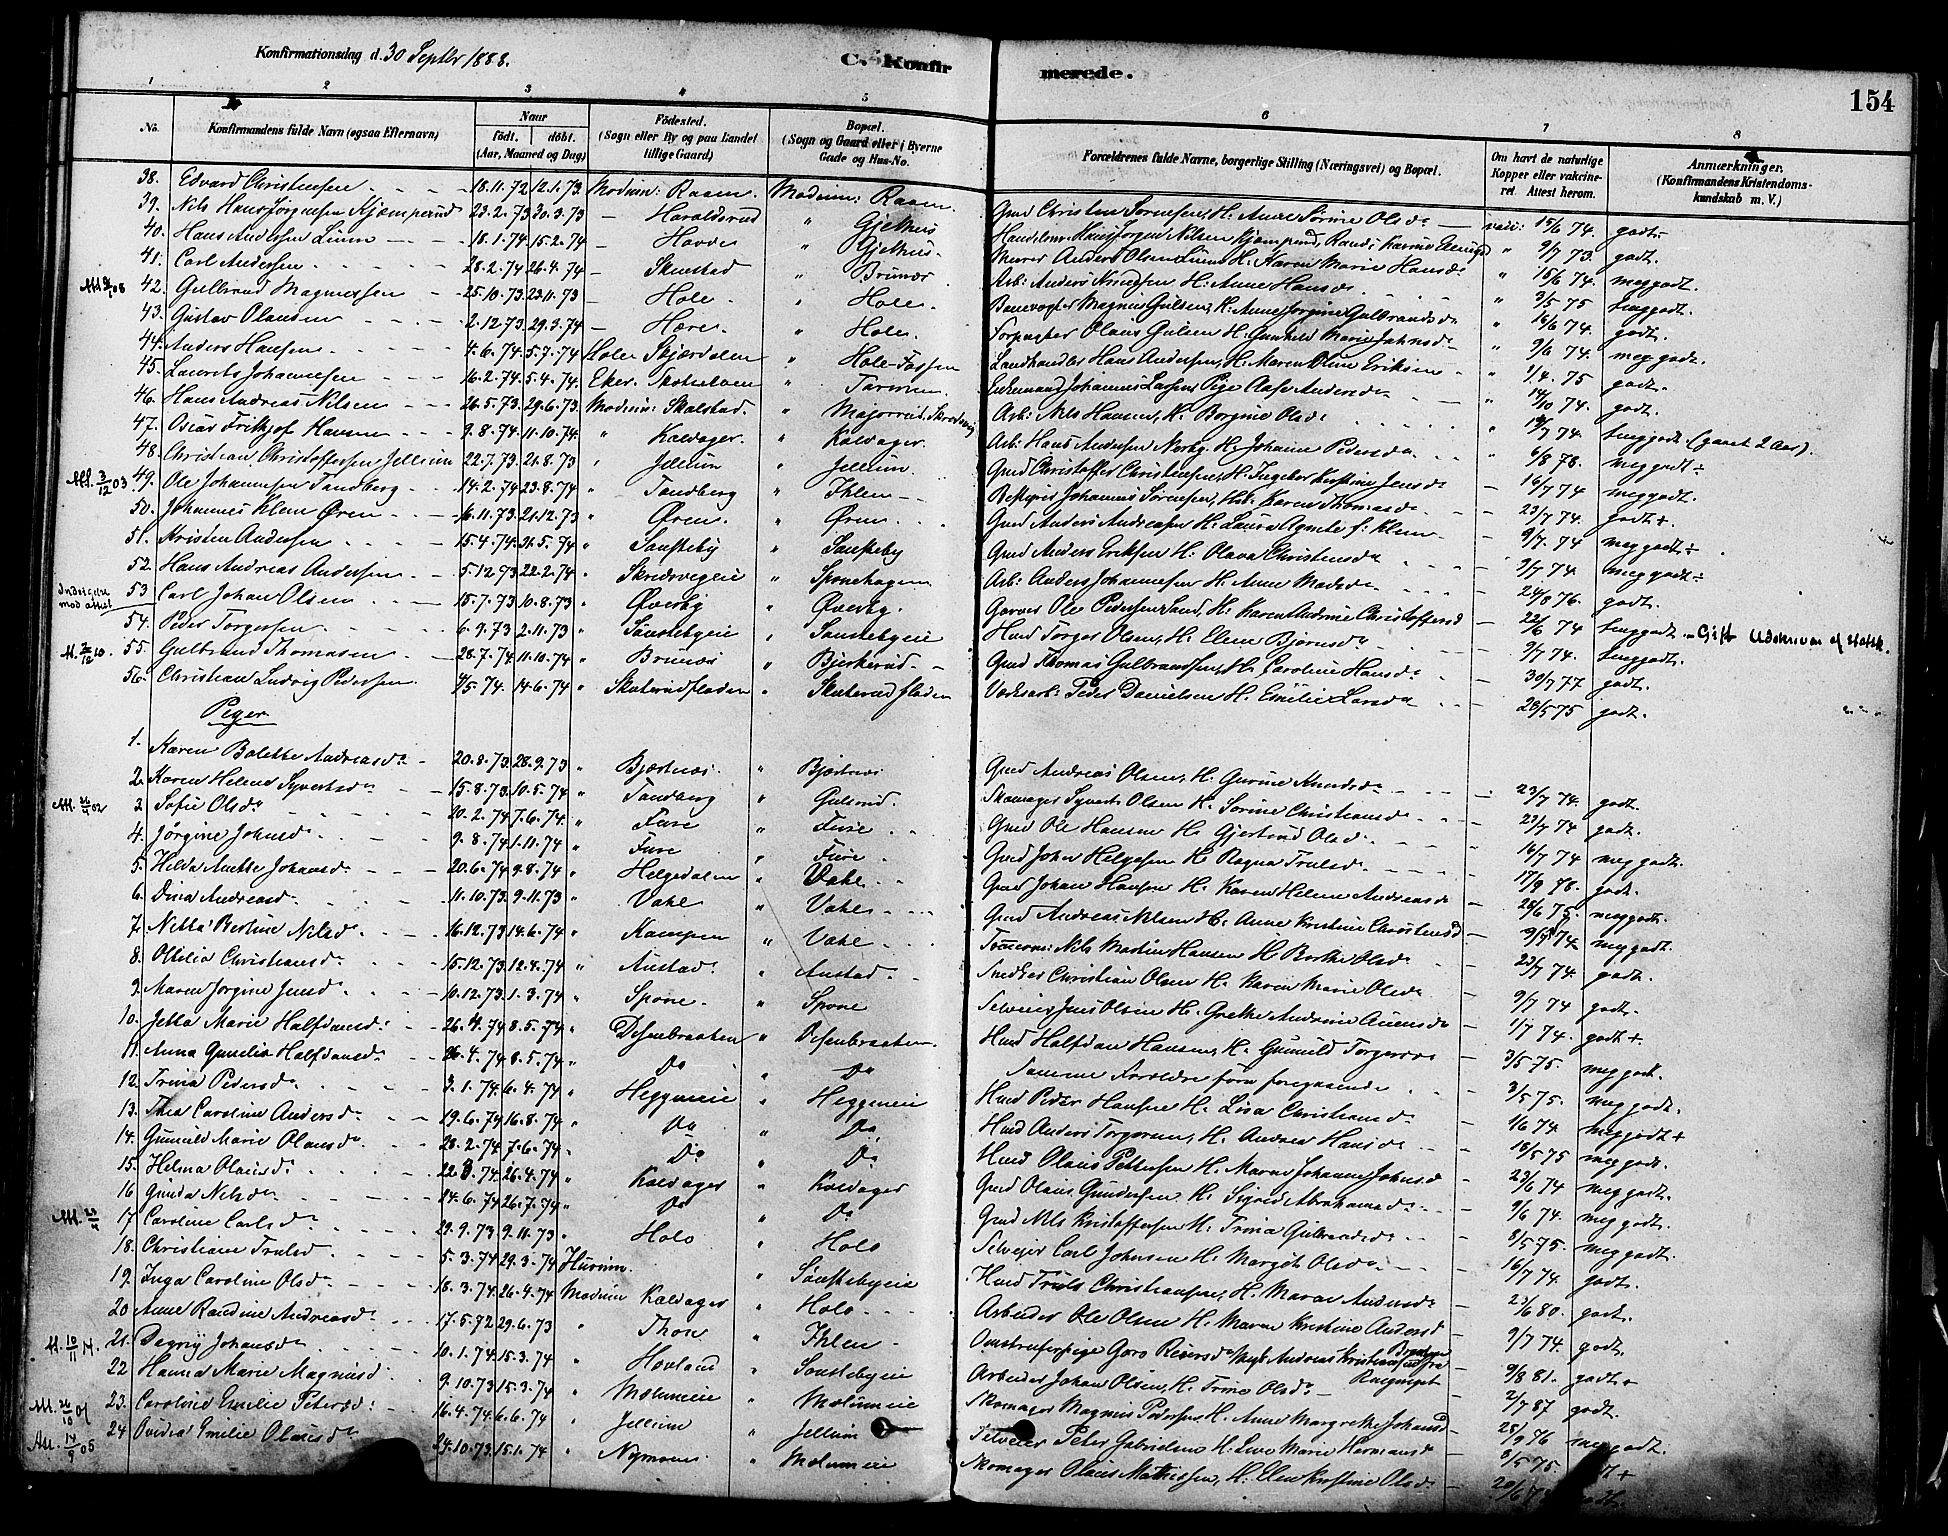 Konfirmationsdag d. 30 Septbr 1888.
C. Konfirmerede.
154
1 2 3 4 5 6 7 8
No. Konfirmandens fulde Navn (ogsaa Efternavn) Naar født. døbt. (Aar, Maaned og Dag) Fødested. (Sogn eller By og paa Landet tillige Gaard) Bopæl. (Sogn og Gaard eller i Byerne Gade og Hus-No. Forældrenes fulde Navne, borgerlige Stilling (Næringsvei) og Bopæl. Om havt de naturlige Kopper eller vakcineret. Attest herom. Anmærkninger. (Konfirmandens Kristendomskundskab m. V.)
38. Edvard Christensen 18.11.72 12.1.73 Modum: Raaen Modum: Raaen Gmd Christen Sørensen, H. Anne Sørine Olsd. vacc: 15/6 74. godt
39. Nils Hans Jørgensen Kjæmperud 23.2.73 30.3.73 — Haraldsrud " Gjethus " 9/7 73. godt.
40. Hans Andersen Linn 18.1.74 15.2.74 — Hovde " Gjethus. Murer Anders Olsen Linn H. Karen Marie Hansd. " 15/6 74. meg godt.
41. Carl Andersen 28.2.74 26.4.74 — Skustad " Brunæs Arb: Anders Knudsen H. Anne Hansd. " 3/5 75
42. Gulbrand Magnussen 25.10.73 23.11.73 — Hole " Hole. Banevogter Magnus Gulsen, H. Anne Jørgine Gulbrandsd. " 16/6 74. godt.
43. Gustav Olausen 2.12.73 29.3.74 — Hære. " Hole. Olaus Gulsen H. Gunhild Marie Johnsd. " 9/6 74. meg godt.
44. Anders Hansen 4.6.74 5.7.74 Hole Skjærdalen " Hole-Fossen Landhandler Hans Andersen, H. Maren Oline Eriksen " 1/4. 75 godt.
45. Laurits Johannesen 16.2.74 5.4.74. Eker. " Enkemand Johannes Larsen, Pige Andersd. " 14/10 74. godt.
46. Hans Andreas Nilsen 26.5.73 29.6.73. Modum: Skalstad. " Arb: Nils Hansen, H. Borgine Olsd. " 74. (gaaet 2 Aar).
47. Oscar Frithjof Hansen 9.8.74 11.10.74 " Kaldager. " Kaldager. Arb: Hans Andersen H. Johanne Pedersd. " 6/8 78. meg godt
48. Christian Christoffersen Jellum 22.7.73 21.8.73 " Jellum " Jellum. Gmd Christoffer Christensen, H. Ingebor Kirstine Jensd. — 16/7 74 meg godt.
49. Ole Johannesen Tandberg 14.2.74 23.8.74 " Tandberg " Ihlen Johannes Sørensen, H. Karen Thomasd. — 23/7 74. godt +
50. Johannes Klem Øren 16.11.73 21.12.73 " Øren. " Øren Gmd Anders Andreasen H. Laura Agnete f: Klem — 9/7. 74 meg godt
51. Kristen Andersen 15.4.74 31.5.74 " Sønsteby " Sønsteby Gmd Anders Eriksen H. Olava Christensd. 9/7 74. meg godt
52. Hans Andreas Andersen 5.12.73 22.2.74 " " Sponehagen Arb: Anders Johannesen H. Anne Madsd. 24/8 76. godt.
53 Carl Johan Olsen 15.7.73 10.8.73 " Øverby " Øverby. Garver Ole Pedersen Sand, H. Karen Andrine Christoffersd 22/6 74
54. Peder Torgersen 6.9.73 2.11.73 " Sønstebyeie " Sønstebyeie Hmd Torger Olsen, H. Elene Bjørnsd. 9/7 74.
55. Gulbrand Thomasen 28.7.74 11.10.74 " Brunæs " Bjerkerud Gmd Thomas Gulbrandsen, H. Caroline Hansd. 30/7 77 godt.
56. Christian Ludvig Pedersen 4/5.74. 14.6.74 " Skuterudfladen " Skuterudfladen Peder Danielsen H. Emilie Larsd. 28/5 75 godt.
Piger
1. Karen Bolette Andreasd. 20.8.73 28.9.73 " Bjærtnæs. " Bjærtnæs Gmd Andreas Olsen, H. Gurine Knudsd. 23/7 74. godt.
2. Karen Helene Syvertsd. 15.8.73 10.5.74 " Tandberg " Gulsrud. Skomager Syvert Olsen H. Sørine Christiansd. — 23/7 74 godt.
3. Sofie Olsd. 20.2.74 7.6.74. " Fure " Fure Gmd Ole Hansen H. Gjertrud Olsd. — 16/7 74 meg godt.
4. Jørgine Johnsd. 9.8.74 1.11.74 " Fure " Fure Gmd John Helgesen H. Ragna Trulsd. 17/9 78. godt.
5. Hilda Anette Johansd. 20.6.74 9.8.74 " Helgedalen " Vahl Gmd Johan Hansen H. Karen Helene Andreasd. 28/6 75. meg godt.
6. Dina Andreasd. 11.10.73 9.11.73 " Vahl " Vahl Gmd Andreas Nilsen H. Anne Kirstine Christensd — 9/7 74. meg godt.
7. Netta Bertine Nilsd. 16.12.73 14.6.74 " Kampen " Vahl Nils Martin Hansen H. Berthe Olsd. — 23/7 74. godt.
8. Othilia Christiansd. 15.12.73 12.4.74 " Austad " Austad Snedker Christian Olsen H. Karen Marie Olsd. — 9/7 74 godt.
9. Maren Jørgine Jensd. 10.12.73 1.3.74 " Spone. " Spone Selveier Jens Olsen H. Grethe Andrine Auensd. — 1/7 74. godt +
10. Jetta Marie Halfdansd. 26.4.74 8.5.74 " Desenbraaten " Desenbraaten. Hmd Halfdan Hansen, H. Gunnild Torgersd. 3/5 75. meg godt.
11. Anna Gunelia Halfdansd. 26.4.74 8.5.74 " Do " Do Samme Forældre som foregaaende 3/5 75. meg godt.
12. Trina Pedersd. 3.1.74 6.4.74 " Heggineie " Heggineie Hmd Peder Hansen H. Lisa Christiansd. — 1/6 74 meg godt +
13. Thea Caroline Andersd. 19.6.74 16.8.74 " Do " Do Hmd Anders Torgersen, H. Andrea Hansd. — 18/5 75 meg godt.
14. Gunnild Marie Olausd. 28.2.74 7.6.74. " Do " Do Hmd Olaus Pettersen H. Maren Johanne Johnsd — 23/6 74 meg godt.
15. Helma Olausd. 22.3.74 26.4.74 " Kaldager " Kaldager Gmd Olaus Gundersen H. Sigrid Abrahamsd. — 9/6 74. meg godt.
16 Gunda Nilsd. 24.6.74 26.7.74 " Do " Do Gmd Nils Kristoffersen H. Trina Gulbrandsd. — 8/5 75. meg godt.
17. Caroline Carlsd. 29.9.73 9.11.73 " Holo " Holo Selveier Carl Johnsen H. Margit Olsd. — 16/7 74. godt.
18. Christiane Trulsd. 5.3.74 29.3.74 Hurum. " Sønstebyeie Hmd Truls Christiansen, H. Maren Andersd. — 23/6 80. godt.
19. Inga Caroline Olsd. 18.3.74 26.4.74 Modum Kaldager " Holo Arbeider Ole Olsen H. Maren Kristine Andersd — 9/7 74. godt.
20 Anne Randine Andreasd. 17.5.72 29.6.73 " Thon " Ihlen — 9/8 81. godt +
21. Dagny Johansd. 10.1.74 15.3.74 " Hovland " Sønstebyeie Arbeider Johan Olsen, H. Trine Olsd. — 2/7 87 godt.
22 Hanna Marie Magnusd. 9.10.73 15.3.74 " Mælumeie " Mælumeie Skomager Magnus Pedersen H. Anne Margrethe Johansd — 28/9 76 meg godt.
23. Caroline Emilie Petersd. 16.4.74 6.6.74 " Jellum " Jellum Selveier Peter Gabrielsen H. Line Marie Hermansd — 3/5 75.
24 Ovidia Emilie Olausd. 24.10.73 15.1.74 " Nymoen. " Mælumeie Skomager Olaus Mathissen, H. Elen Kirstine Olsd.